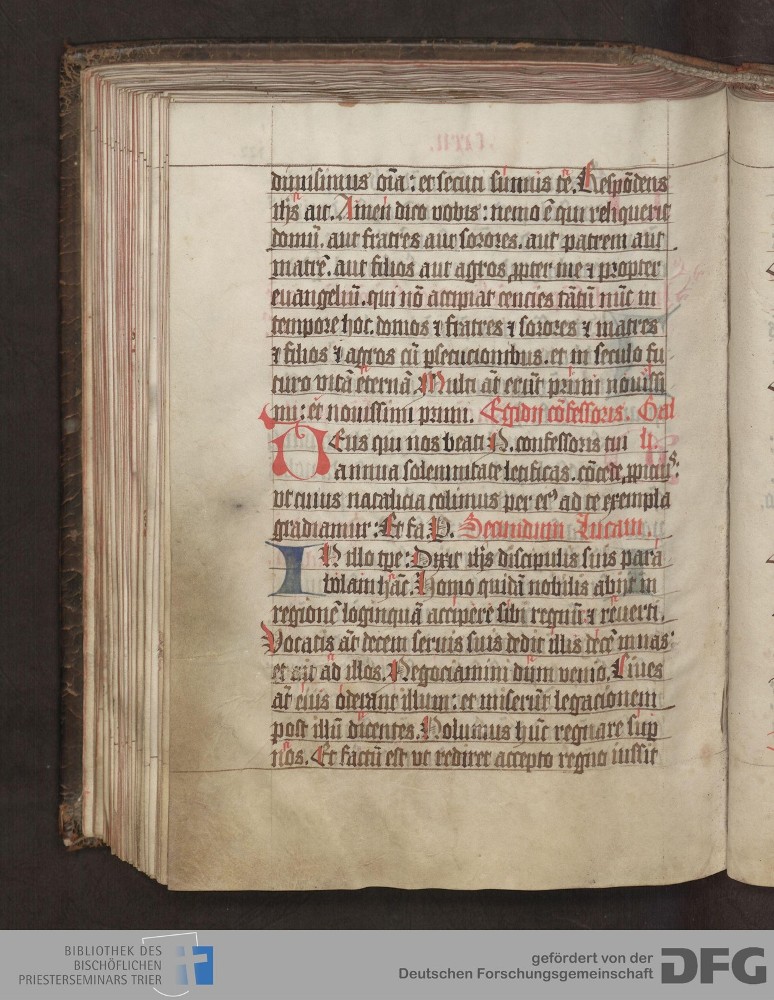 dimisimus oīa: et secuti sumus te. Respōdens
ihs ait. Amen dico vobis: nemo ē qui reliquerit
domū. aut fratres aut sorores. aut patrem aut
matrē. aut filios aut agros ꝓpter me ⁊ propter
euangeliū. qui nō accipiat centies tātū nūc in
tempore hoc. domos ⁊ fratres ⁊ sorores ⁊ matres
⁊ filios ⁊ agros cū ꝑsecucionibus. et in seculo fu
turo vitā eternā. Multi āt erūt primi nouissi
mi: et nouissimi primi. Egidii cōfessoris.
Deus qui nos beati N. confessoris tui
annua solemnitate letificas. cōcede ꝓpicius:
vt cuius natalicia colimus per eꝰ ad te exempla
gradiamur: Et fa P. Secundum Lucam.
IN illo tꝑe: Dixit ihs discipulis suis para
bolam hāc. Homo quidā nobilis abijt in
regionē loginquā accipere sibi regnū ⁊ reuerti.
Vocatis āt decem seruis suis dedit illis decē mnas:
et ait ad illos. Negociamini dum venio. Ciues
āt eius oderant illum: et miserūt legacionem
post illū dicentes. Nolumus hūc regnare sup
nos. Et factū est vt rediret accepto regno iussit
BIBLIOTHEK DES
BISCHÖFLICHEN
PRIESTERSEMINARS TRIER
gefördert von der
Deutschen Forschungsgemeinschaft
DFG